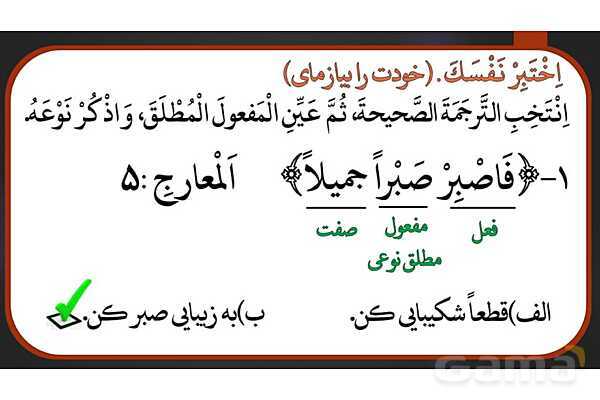 اِخْتَبِرْ نَفْسَكَ. (خودت را بیازمای)
اِنْتَخِبِ التَّرجَمَةَ الصَّحیحةَ، ثُمَّ عَیِّنِ الْمَفعولَ الْمُطْلَقَ، وَ اذْکُرْ نَوْعَهُ.
۱-﴿فَاصْبِرْ صَبْراً جمیلاً﴾ اَلْمعارِج :۵
فعل مفعول صفت
مطلق نوعی
الف)قطعاً شکیبایی کن. ب)به زیبایی صبر کن.
Gama